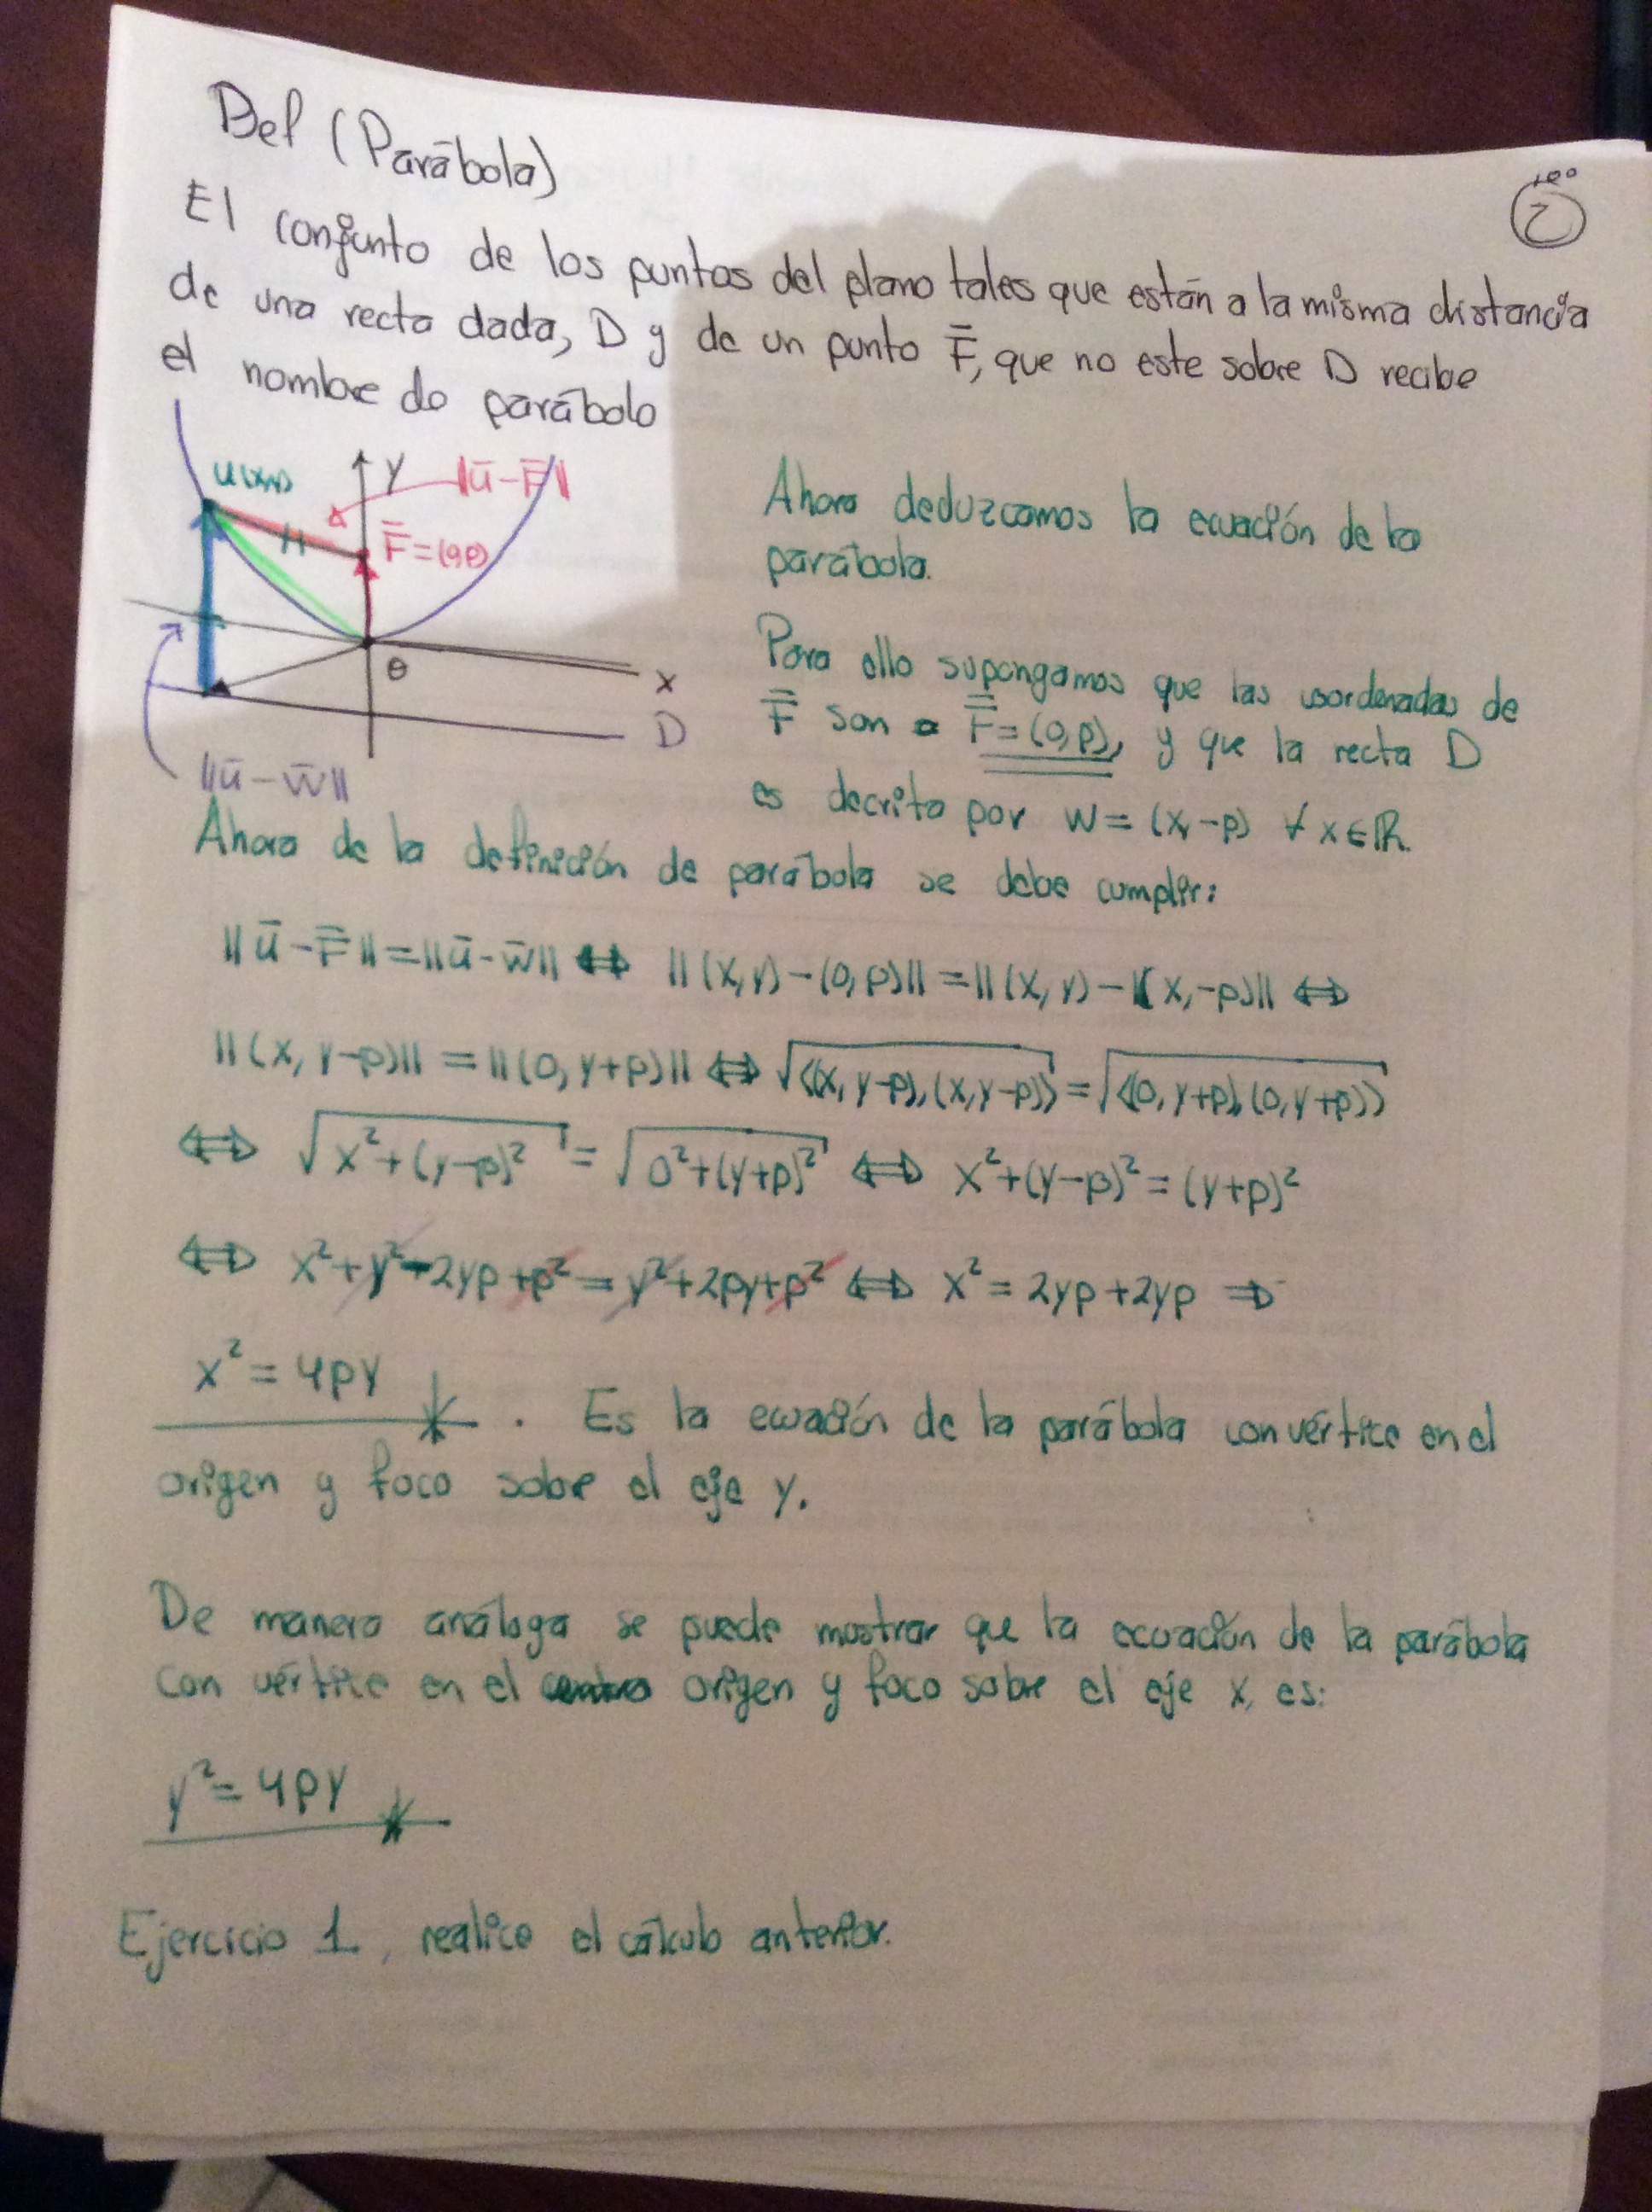 Def (Parábola)
2
El conjunto de los puntos del plano tales que están a la misma distancia
de una recta dada, D y de un punto F̄, que no este sobre D recibe
el nombre de parábola
y
||ū-F̄||
F̄=(0,p)
θ
x
D
||ū-w̄||
Ahora deduzcamos la ecuación de la
parábola.
Para ello supongamos que las coordenadas de
F̄ son F̄=(0,p), y que la recta D
es decrita por w=(x,-p) ∀ x∈ℝ.
Ahora de la definición de parábola se debe cumplir:
||ū-F̄||=||ū-w̄|| ⇔ ||(x,y)-(0,p)||=||(x,y)-(x,-p)|| ⇔
||(x, y-p)|| = ||(0, y+p)|| ⇔ √⟨(x, y-p),(x,y-p)⟩ = √⟨(0,y+p),(0,y+p)⟩
⇔ √x²+(y-p)² = √0²+(y+p)² ⇔ x²+(y-p)² = (y+p)²
⇔ x²+y²-2yp+p² = y²+2py+p² ⇔ x² = 2yp+2yp ⇒
x² = 4py . Es la ecuación de la parábola con vértice en el
origen y foco sobre el eje y.
De manera análoga se puede mostrar que la ecuación de la parábola
con vértice en el origen y foco sobre el eje x, es:
y²=4py
Ejercicio 1, realice el cálculo anterior.